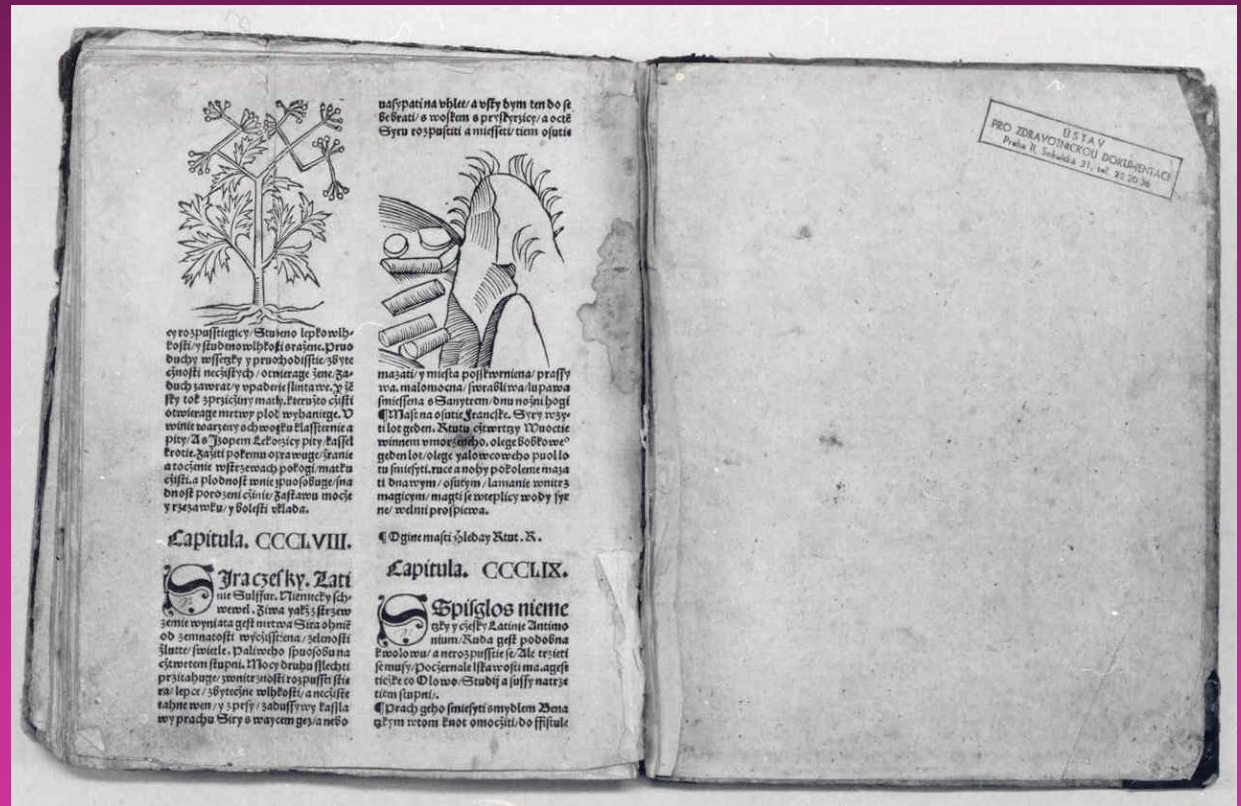 ey rozpusstiegicy/Studeno lepkowlh-
kosti/y studenowlhkosti srazene. Pruo
duchy wssetzky y pruochodisstie/zbyte
cznosti neczistych/otwierage zene/Za-
duch zawrat/y vpadenie slintawe. Y ze
sky tok zprzicziny matky. kteruzto czisti
otwierage mrtwy plod wyhaniege. V
winie warzeny sch wosku klassternie a
pity/A s Jzopem Lekorzicy pity/kassel
krotie. Zaziti pokrmu oprawuge/zranie
a toczenie wstrzewach pokogi/matku
czisti. a plodnost w nie zpuosobuge/sna
dnost porozeni czinie/Zastawu mocze
y rzezawku/y bolesti vklada.
Capitula. CCCLVIII.
SJra czesky. Lati
nie Sulffur. Niemecky sch-
wewel. Ziwa yakz z strzew
zemie wyniata gest mrtwa Sira ohnie
od zemnatosti wyczisstiena/zelenosti
zlutte/swietle. Paliweho spuosobu na
cztwrtem stupni. Mocy druhu sslechti
przitahuge/zwnitrznosti rozpussti stie
ra/lepce/zbyteczne wlhkosti/a neczistie
tahne wen/y z prsy/zadussywy kassla
wy prachu Siry s waycem gez/a nebo
nasypati na vhle/a vsty dym ten do se
be brati/s woskem s pryskyrzicy/a octe
Syru rozpustiti a miesseti/tiem osutie
mazati/y miesta posskwrniena/prassy
wa. malomocna/swrabliwa/lupawa
smiessena s Sanytrem/dnu nozni hogi
¶ Mast na osutie Francske. Syry wzy-
ti lot geden. Rtutu cztwrtzy Wuoctie
winnem vmorzeneho. olege bobkoweo
geden lot/olege yalowcoweho puol lo
tu smiesyti. ruce a nohy po koleme maza
ti dnawym/osutym/lamanie wnitrz
magicym/magti se wteplicy wody syr
ne/welmi prospiewa.
¶ O gine masti Hleday Rtut. R.
Capitula. CCCLIX.
SSpisglos nieme
tzky y czesky Latinie Antimo
nium/Ruda gest podobna
k wolowu/a nerozpusstie se/Ale trzieti
se musy/Poczernale lskawosti ma. a gest
tiezke co Olowo/Studij a sussy na trze
tiem stupni/.
¶ Prach geho smiesyti s mydlem Bena
tzkym w tom knot omocziti/do ffistule
ÚSTAV
PRO ZDRAVOTNICKOU DOKUMENTACI
Praha II, Sokolská 31, tel.